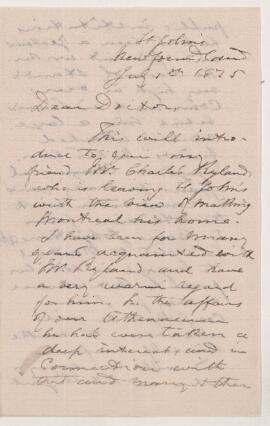 St John's
Newfoundland
July 1st 1875
Dear Doctor,
This will intro-
duce to you my
friend Mr. Charles Ryland,
who is leaving St John's
with the view of making
Montreal his home.
I have been for many
years acquainted with
Mr. Ryland and have
a very warm regard
for him. In the affairs
of our Athenaeum
he has ever taken a
deep interest, and in
connection with
that and many other